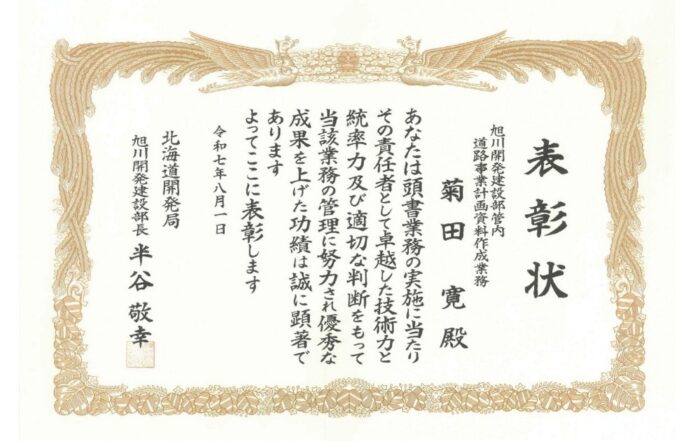 表彰状
旭川開発建設部管内
道路事業計画資料作成業務
菊田 寛 殿
あなたは頭書業務の実施に当たり
その責任者として卓越した技術力と
統率力及び適切な判断をもって
当該業務の管理に努力され優秀な
成果を上げた功績は誠に顕著で
あります
よってここに表彰します
令和七年八月一日
北海道開発局
旭川開発建設部長 半谷敬幸